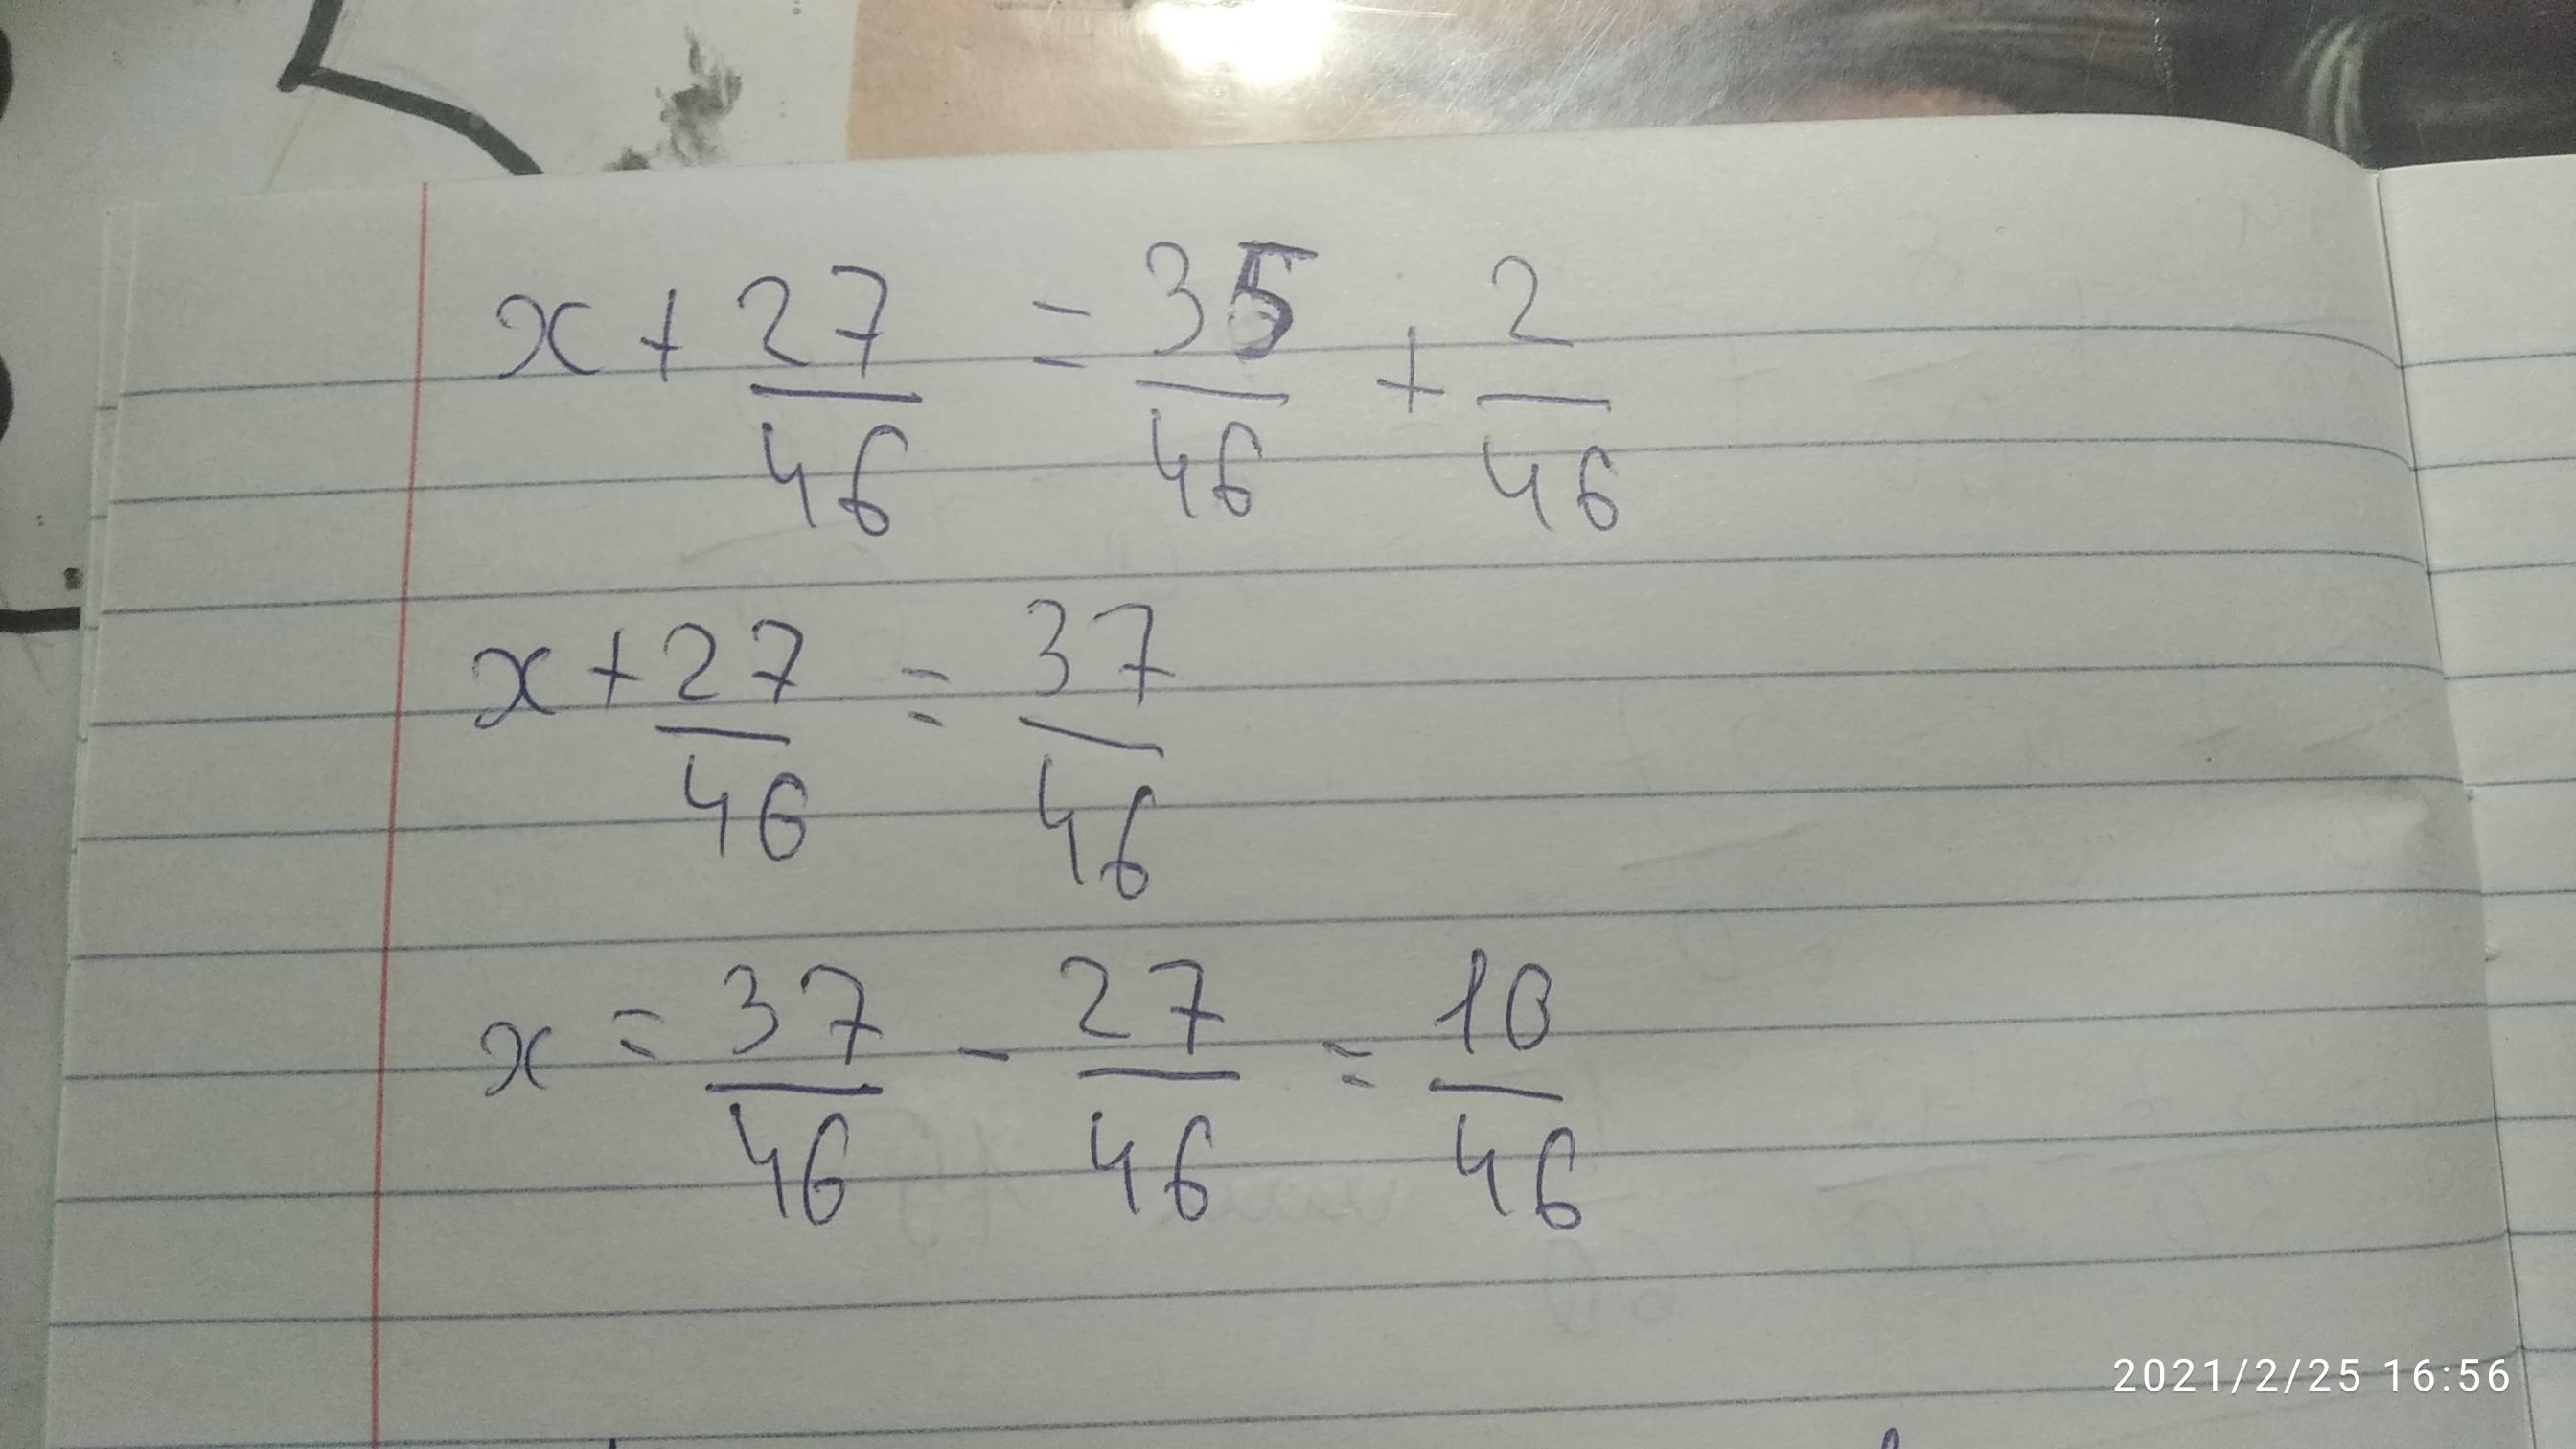 x + 27/46 = 35/46 + 2/46
x + 27/46 = 37/46
x = 37/46 - 27/46 = 10/46
2021/2/25 16:56